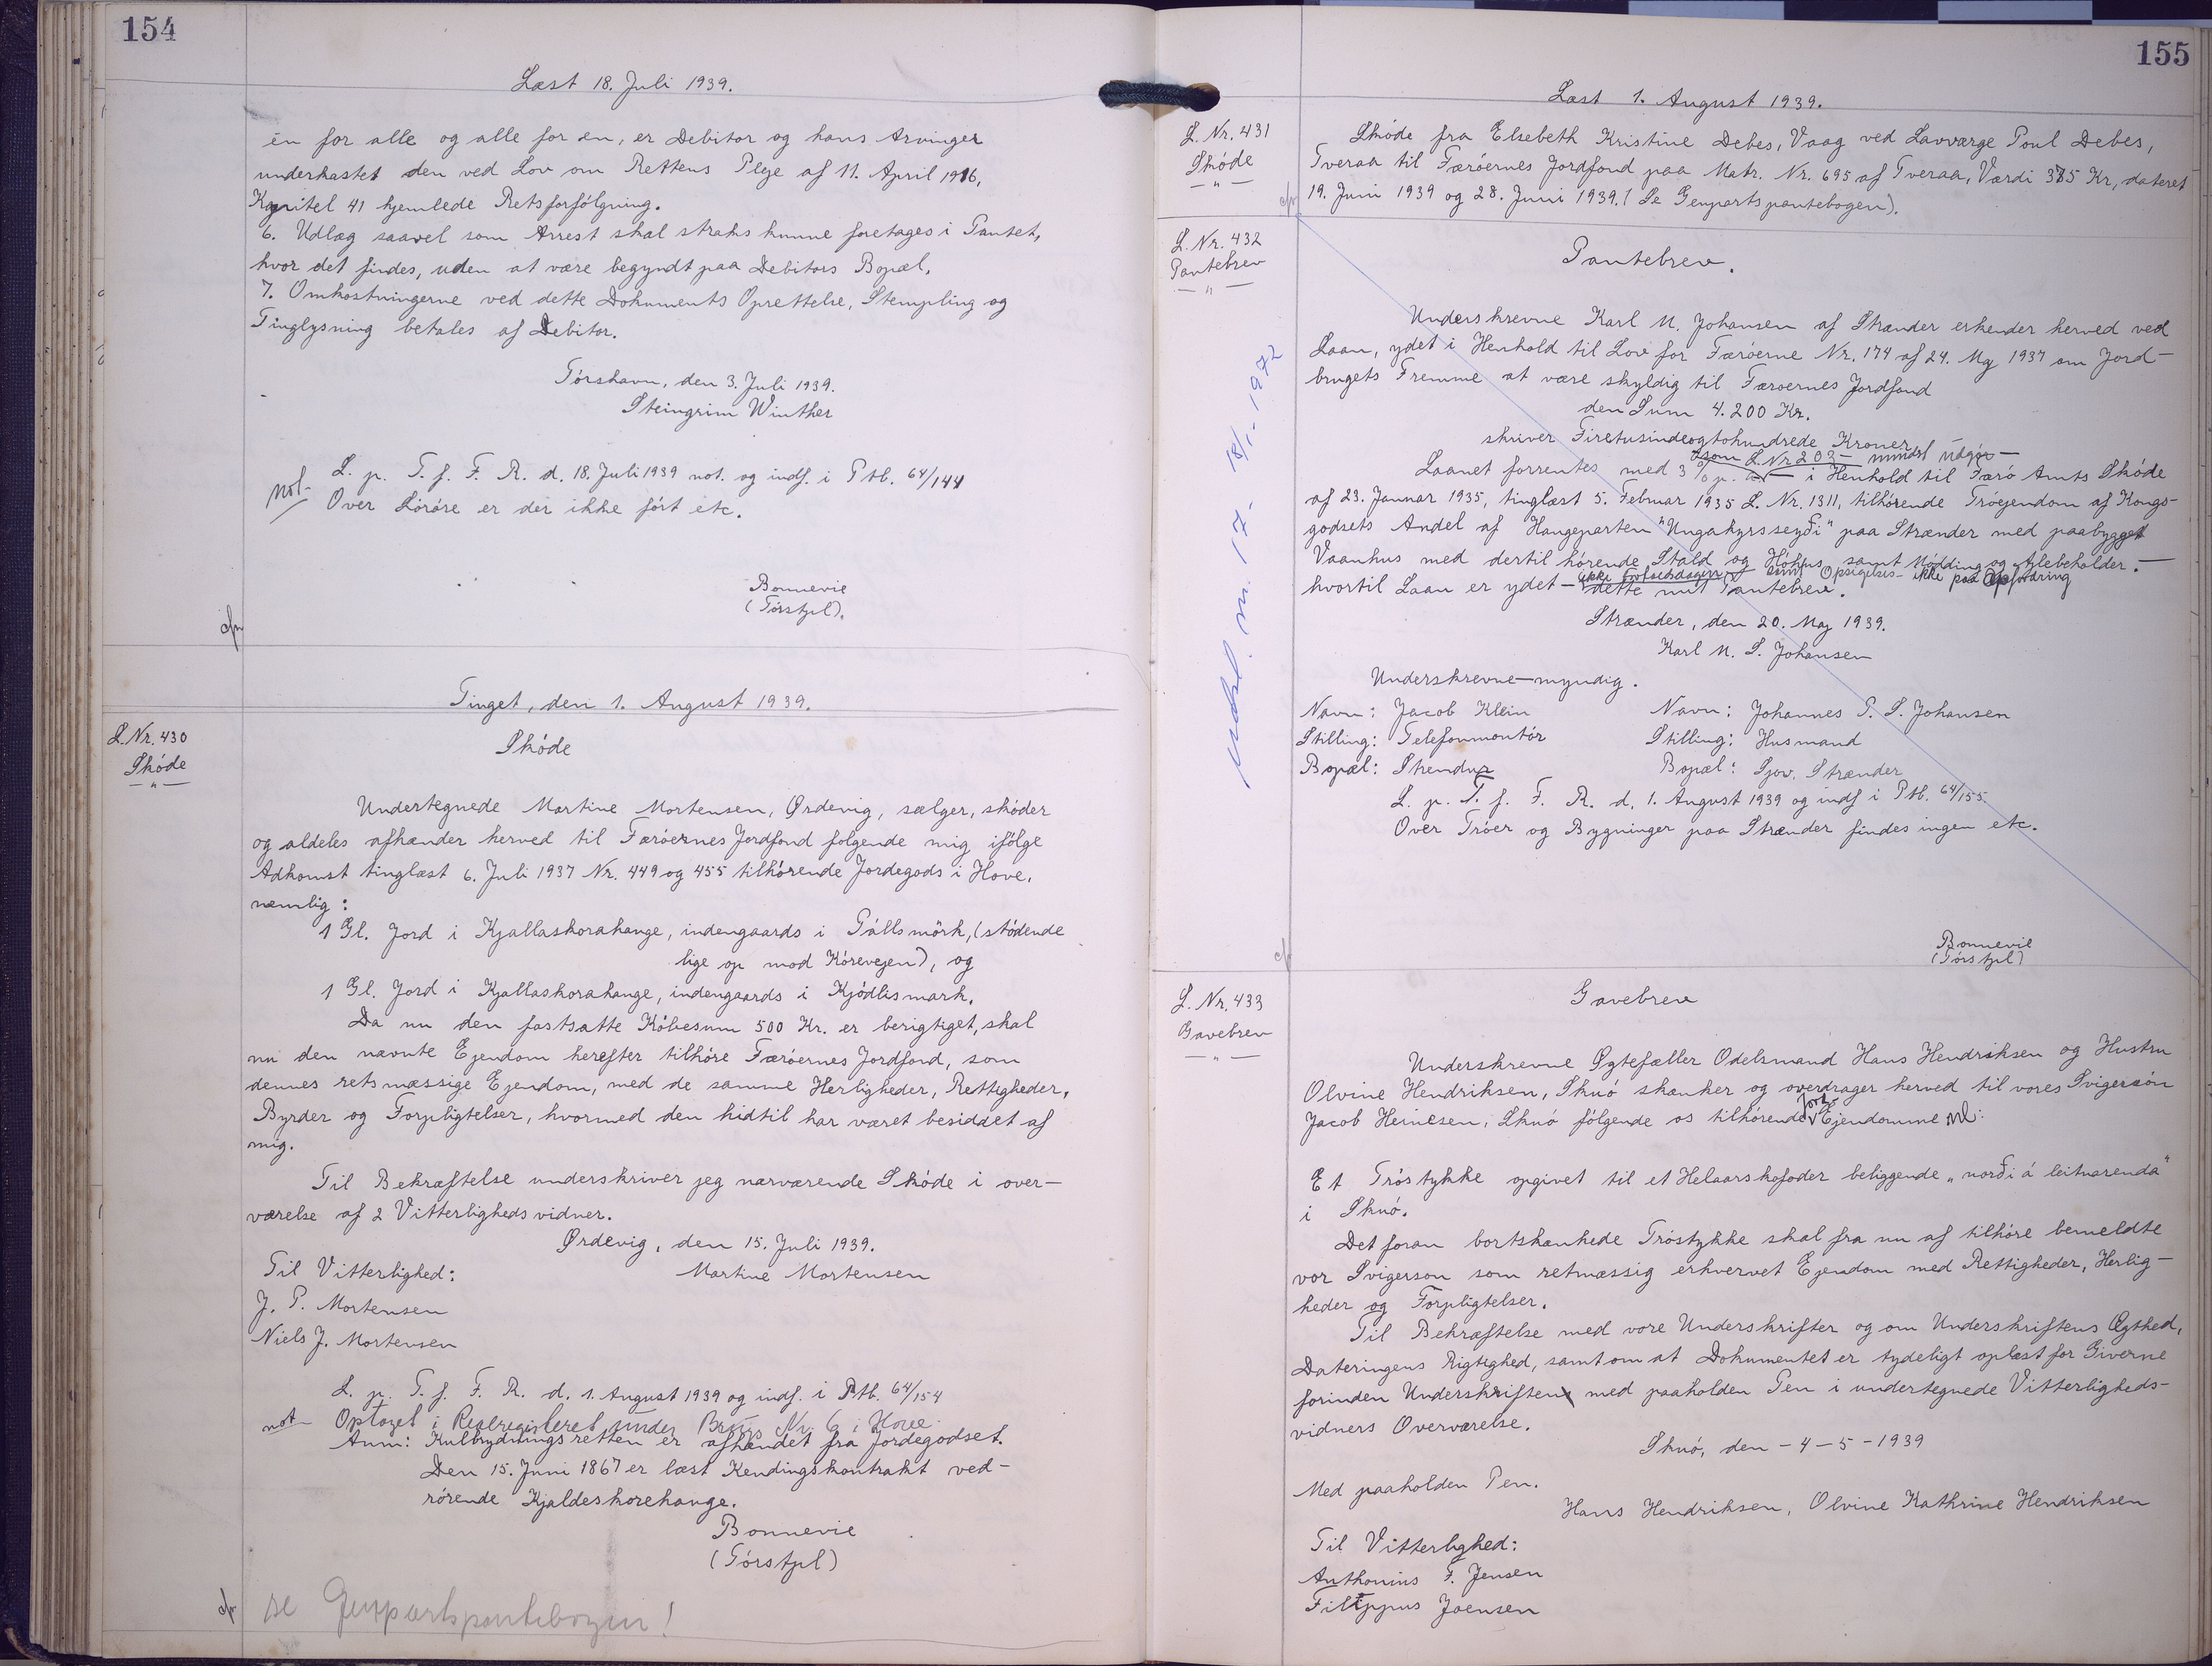 154
Læst 18. Juli 1939.
én for alle og alle for en, er Debitor og hans Arvinger
underkastet den ved Lov om Rettens Pleje af 11. April 1916,
Kapitel 41 hjemlede Retsforfólgning.
6. Udlæg saavel som Arrest skal straks kunne foretages i Pantet,
hvor det findes, uden at være begyndt paa Debitors Bopæl.
7. Omkostningerne ved dette Dokuments Oprettelse, Stempling og
Tinglysning betales af Debitor.
Tórshavn, den 3. Juli 1939.
Steingrim Winther
not- L. p. T. f. F. R. d. 18. Juli 1939 not. og indf. i Ptb. 64/144
Over Lösöre er der ikke fórt etc.
Bonnevie
(Tórstfpl).
Tinget, den 1. August 1939.
L. Nr. 430
Skóde
— " —
Skóde
Undertegnede Martine Mortensen, Ørdevig, sælger, skóder
og aldeles afhænder herved til Færóernes Jordfond folgende mig ifólge
Adkomst tinglæst 6. Juli 1937 Nr. 449 og 455 tilhórende Jordegods i Hove.
nemlig:
1 Gl. Jord i Kjallaskorahauge, indengaards i Pállsmórk, (stódende
lige op mod Kórevejen), og
1 Gl. Jord i Kjallaskorahauge, indengaards i Kjódlismark.
Da nu den fastsatte Kóbesum 500 Kr. er berigtiget, skal
nu den nævnte Ejendom herefter tilhóre Færóernes Jordfond, som
dennes retsmæssige Ejendom, med de samme Herligheder, Rettigheder,
Byrder og Forpligtelser, hvormed den hidtil har været besiddet af
mig.
Til Bekræftelse underskriver jeg nærværende Skóde i over-
værelse af 2 Vitterligheds vidner.
Ørdevig, den 15. Juli 1939.
Til Vitterlighed: Martine Mortensen
J. P. Mortensen
Niels J. Mortensen
L. p. T. f. F. R. d. 1. August 1939 og indf. i Ptb. 64/154
not- Optaget i Realregisteret under Brugs Nr. 6 i Hove.
Anm: Kulbrydningsretten er afhændet fra Jordegodset.
Den 15. Juni 1867 er læst Kendingskontrakt ved-
rórende Kjaldeskorehauge.
Bonnevie
(Tórstfpl)
se Genpartspantebogen!
155
Læst 1. August 1939.
L. Nr. 431
Skóde
— " —
Skóde fra Elsebeth Kristine Debes, Vaag ved Lavværge Poul Debes,
Tveraa til Færóernes Jordfond paa Matr. Nr. 695 af Tveraa, Værdi 375 Kr, dateret
19. Juni 1939 og 28. Juni 1939. (Se Genpartspantebogen).
L. Nr. 432
Pantebrev
— " —
Pantebrev.
Underskrevne Karl M. Johansen af Strænder erkender herved ved
Laan, ydet i Henhold til Lov for Færóerne Nr. 174 af 24. Maj 1937 om Jord-
brugets Fremme at være skyldig til Færoernes Jordfond
den Sum 4.200 Kr.
skriver Firetusindeogtohundrede Kroner,
som L. Nr 203 — mindst udgór —
Laanet forrentes med 3 % p. a. — i Henhold til Færó Amts Skóde
af 23. Januar 1935, tinglæst 5. Februar 1935 L. Nr. 1311, tilhórende Tróejendom af Kongs-
godsets Andel af Haugeparten "Ungakyrsseyði" paa Strænder med paabygget
Vaanhus med dertil hórende Stald og Hóhus samt Módding og Ajlebeholder. —
hvortil Laan er ydet — dette mit Pantebrev.
Strænder, den 20. Maj 1939.
Karl M. S. Johansen
Underskrevne — myndig.
Navn: Jacob Klein Navn: Johannes P. S. Johansen
Stilling: Telefonmontór Stilling: Husmand
Bopæl: Strendur Bopæl: Sjov. Strænder
L. p. T. f. F. R. d. 1. August 1939 og indf i Ptb. 64/155
Over Tróer og Bygninger paa Strænder findes ingen etc.
Bonnevie
(Tórstfpl)
udsl. m. 17.- 18/1-1972
L. Nr. 433
Gavebrev
— " —
Gavebrev
Underskrevne Ægtefæller Odelsmand Hans Hendriksen og Hustru
Olvine Hendriksen, Skuó skænker og overdrager herved til vores Svigersón
Jacob Heinesen, Skuó fólgende os tilhórende Jord Ejendomme nl:
Et Tróstykke opgivet til et Helaarskofoder beliggende „norði á leitnarenda"
i Skuó.
Det foran bortskænkede Tróstykke skal fra nu af tilhóre bemeldte
vor Svigerson som retmæssig erhvervet Ejendom med Rettigheder, Herlig-
heder og Forpligtelser.
Til Bekræftelse med vore Underskrifter og om Underskriftens Ægthed,
Dateringens Rigtighed, samt om at Dokumentet er tydeligt oplæst for Giverne
forinden Underskriften med paaholden Pen i undertegnede Vitterligheds-
vidners Overværelse.
Skuó, den - 4 - 5 - 1939
Med paaholden Pen.
Hans Hendriksen, Olvine Kathrine Hendriksen
Til Vitterlighed:
Anthonius F. Jensen
Filippus Joensen